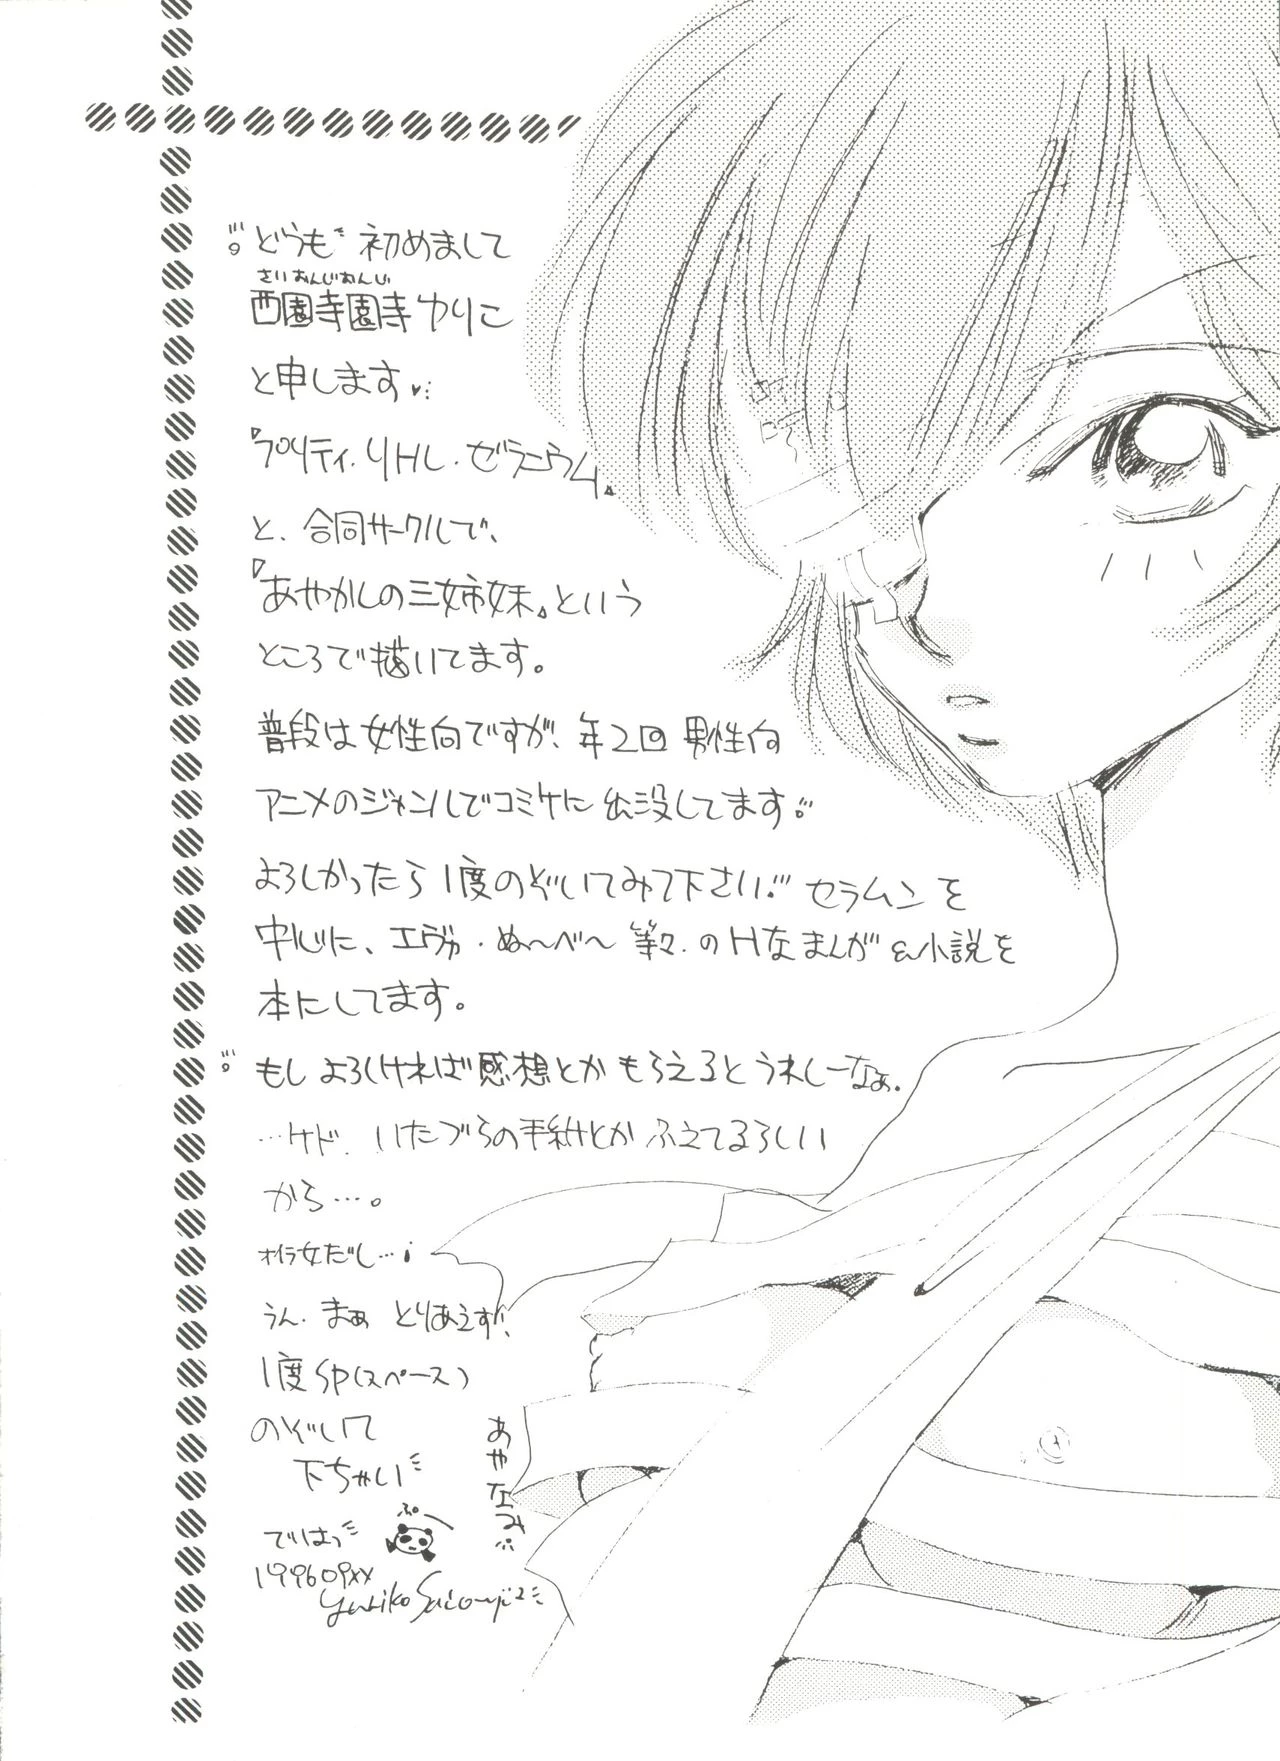 どうも 初めまして
さいおんじおんじ
西園寺園寺ゆりこ
と申します♥
『プリティ・リトル・ゼラニウム』
と、合同サークルで、
『あやかしの三姉妹』という
ところで描いてます。
普段は女性向ですが、年2回 男性向
アニメのジャンルでコミケに出没してます。
よろしかったら1度のぞいてみて下さい!! セラムンを
中心に、エヴァ・ぬ〜べ〜 等々・のHなまんが&小説を
本にしてます。
もしよろしければ感想とかもらえるとうれしーなぁ。
…ケド、いたづらの手紙とかふえてるらしい
から…。
オイラ女だし…。
うん、まぁ とりあえず、
1度SP(スペース)
のぞいて
下ちゃい
ではっ
ぷー
あやなみ
199609XX
Yuriko Saionji2